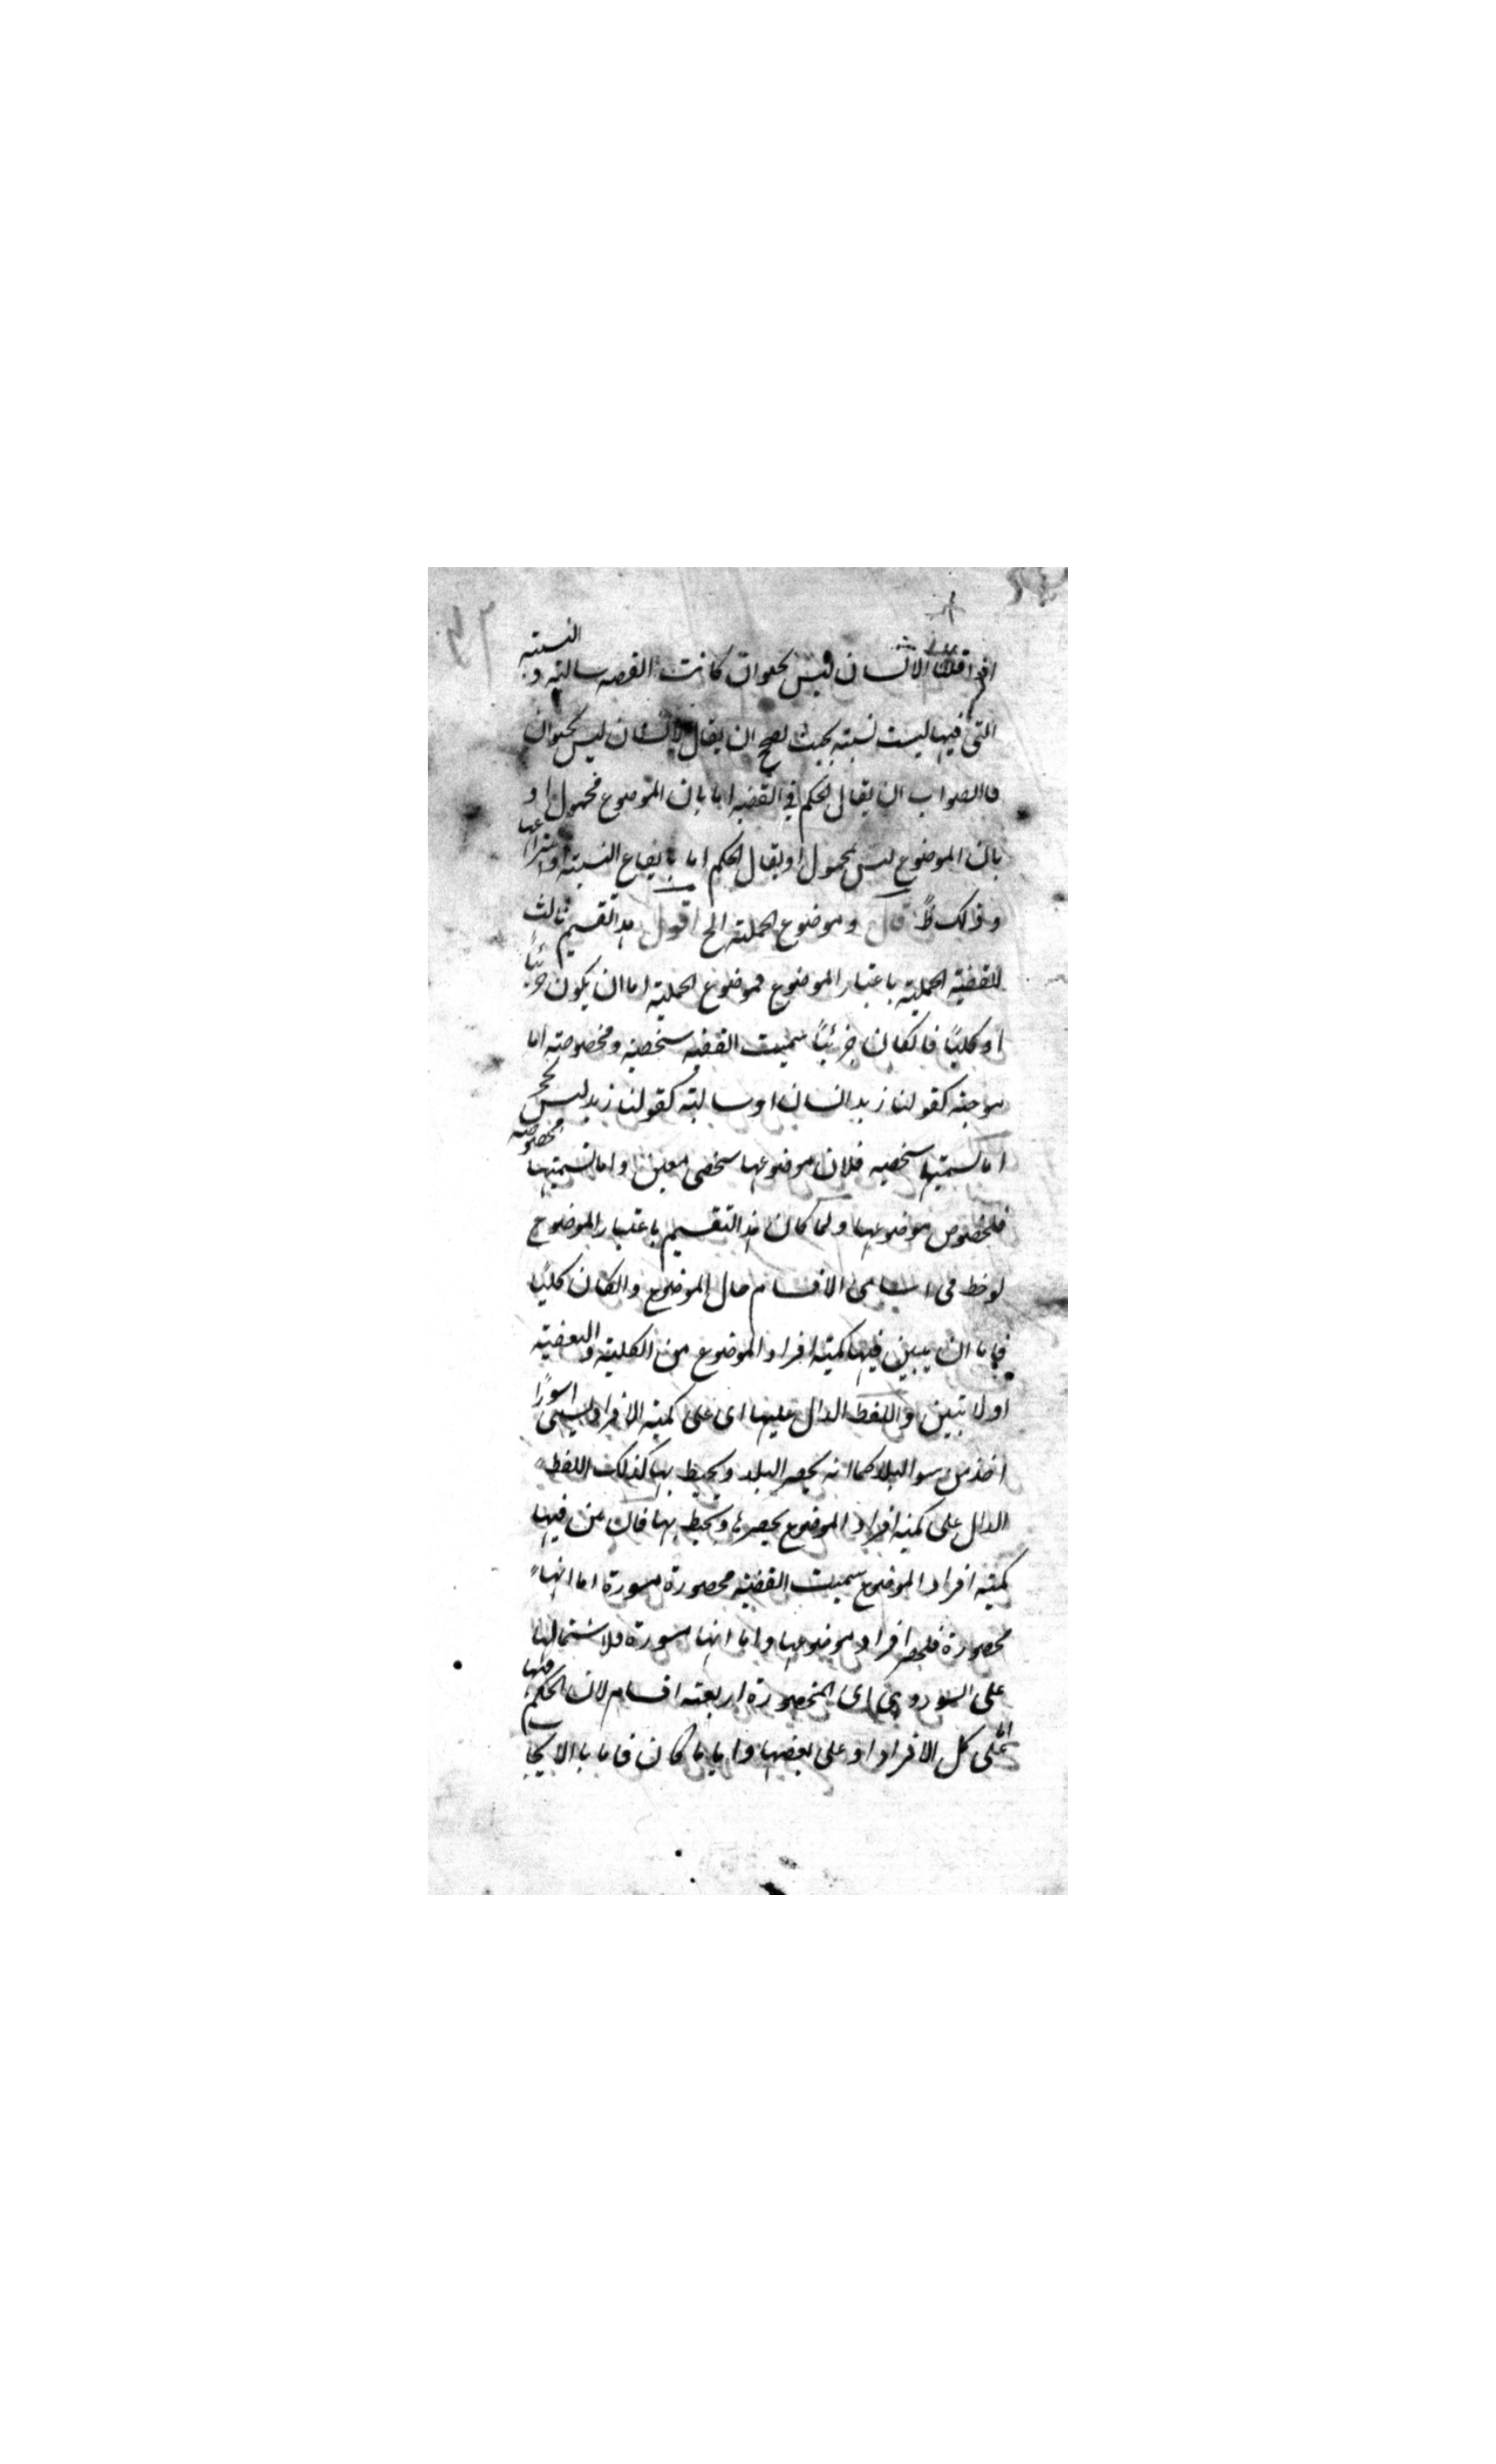 اذا قلنا الانسان ليس بحيوان كانت القضيه سالبة و النسبته
التى فيها ليست نسبته بحيث يصح ان يقال الانسان ليس بحيوان
فالصواب ان يقال الحكم فى القضيه اما بان الموضوع محمول او
بان الموضوع ليس بمحمول او يقال الحكم اما بايقاع النسبته او انتزاعها
و ذلك ظ قال و موضوع الحمليته الخ اقول هذا تقسيم ثالث
للقضيته الحمليته باعتبار الموضوع فموضوع الحمليته اما ان يكون جزئيًا
او كليًا فا نكان جزئيًا سميت القضيه شخصيه و مخصوصته اما
موجبته كقولنا زيد انسان او سالبته كقولنا زيد ليس بحجر
اما تسميتها شخصيه فلان موضوعها شخص معين و اما تسميتها مخصوصه
فلخصوص موضوعها و لما كان هذا التقسيم باعتبار الموضوع
لوحظ فى اسامى الاقسام حال الموضوع و انكان كليًا
فاما ان يبين فيها كميته افراد الموضوع من الكليته و البعضيته
او لا تبين و اللفظ الدال عليها اى على كميته الافراد يسمى سورًا
اخذ من سور البلد كما انه يحصر البلد و يحيط بها كذلك اللفظ
الدال على كميته افراد الموضوع يحصرها و يحيط بها فان بين فيها
كميته افراد الموضوع سميت القضيته محصورة مسورة اما انها
محصورة فلحصر افراد موضوعها و اما انها مسورة فلا شتمالها
على السور و هى اى المحصورة اربعته اقسام لان الحكم فيها
اما على كل الافراد او على بعضها و ايا ما كان فاما بالايجاب